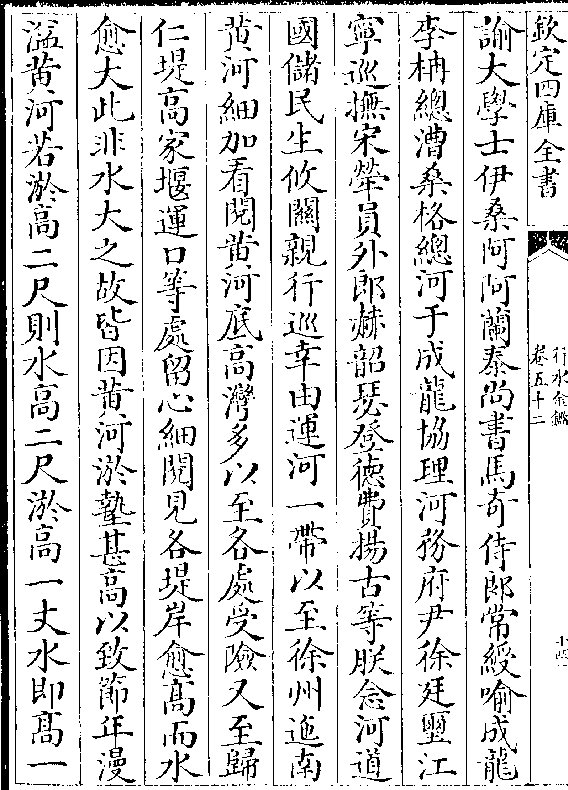 欽定四庫全書
行水金鑑
卷五十二
諭大學士伊桑阿阿蘭泰尚書馬奇侍郎常綬喻成龍
李柟總漕桑格總河于成龍協理河務府尹徐廷璽江
寧巡撫宋犖員外郎赫韶瑟登德費揚古等朕念河道
國儲民生攸關親行巡幸由運河一帶以至徐州迤南
黄河細加看閱黄河底高灣多以至各處受險又至歸
仁堤高家堰運口等處留心細閱見各堤岸愈高而水
愈大此非水大之故皆因黄河淤墊甚高以致節年漫
溢黄河若淤高二尺則水高二尺淤高一丈水即高一